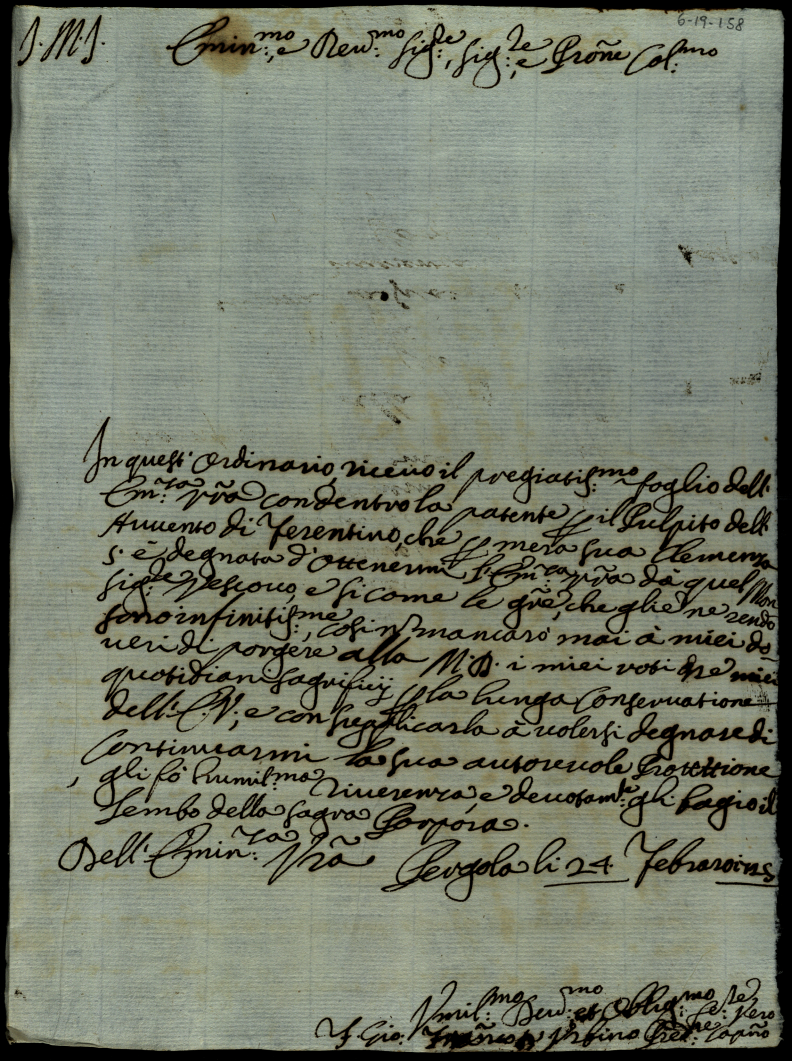 6-19-158
J. M. J.
Emin:mo, e Reu:mo Sig:re, Sig:re, e Prõne Col:mo
In quest' Ordinario, riceuo il pregiatis:mo foglio dell'
Em:za Vrã con dentro la patente p il Pulpito dell'
Auuento di Ferentino, che p mera sua Clemenza
s' è degnata d'ottenermi l' Em:za Vrã dà quel Mon
Sig:re Vescouo, e si come le grẽ, che gliẽ ne rendo
sono infinitis:me, cosi nõ mancarò mai à miei do
ueri di porgere alla M. D. i miei voti ne miei
quotidiani sagrificij p la lunga Conseruatione
dell' E. V., e con supplicarla à volersi degnare di
Continuarmi la sua autoreuole Protettione
gli fò humil:ma riuerenza, e deuotam:te gli bagio il
Lembo della sagra Porpora.
Dell' Emin:za Vrã Pergola li 24 Febraro
Vmil:mo Deu:mo et Oblig:mo Se:re Vero
F. Gio: Urbino